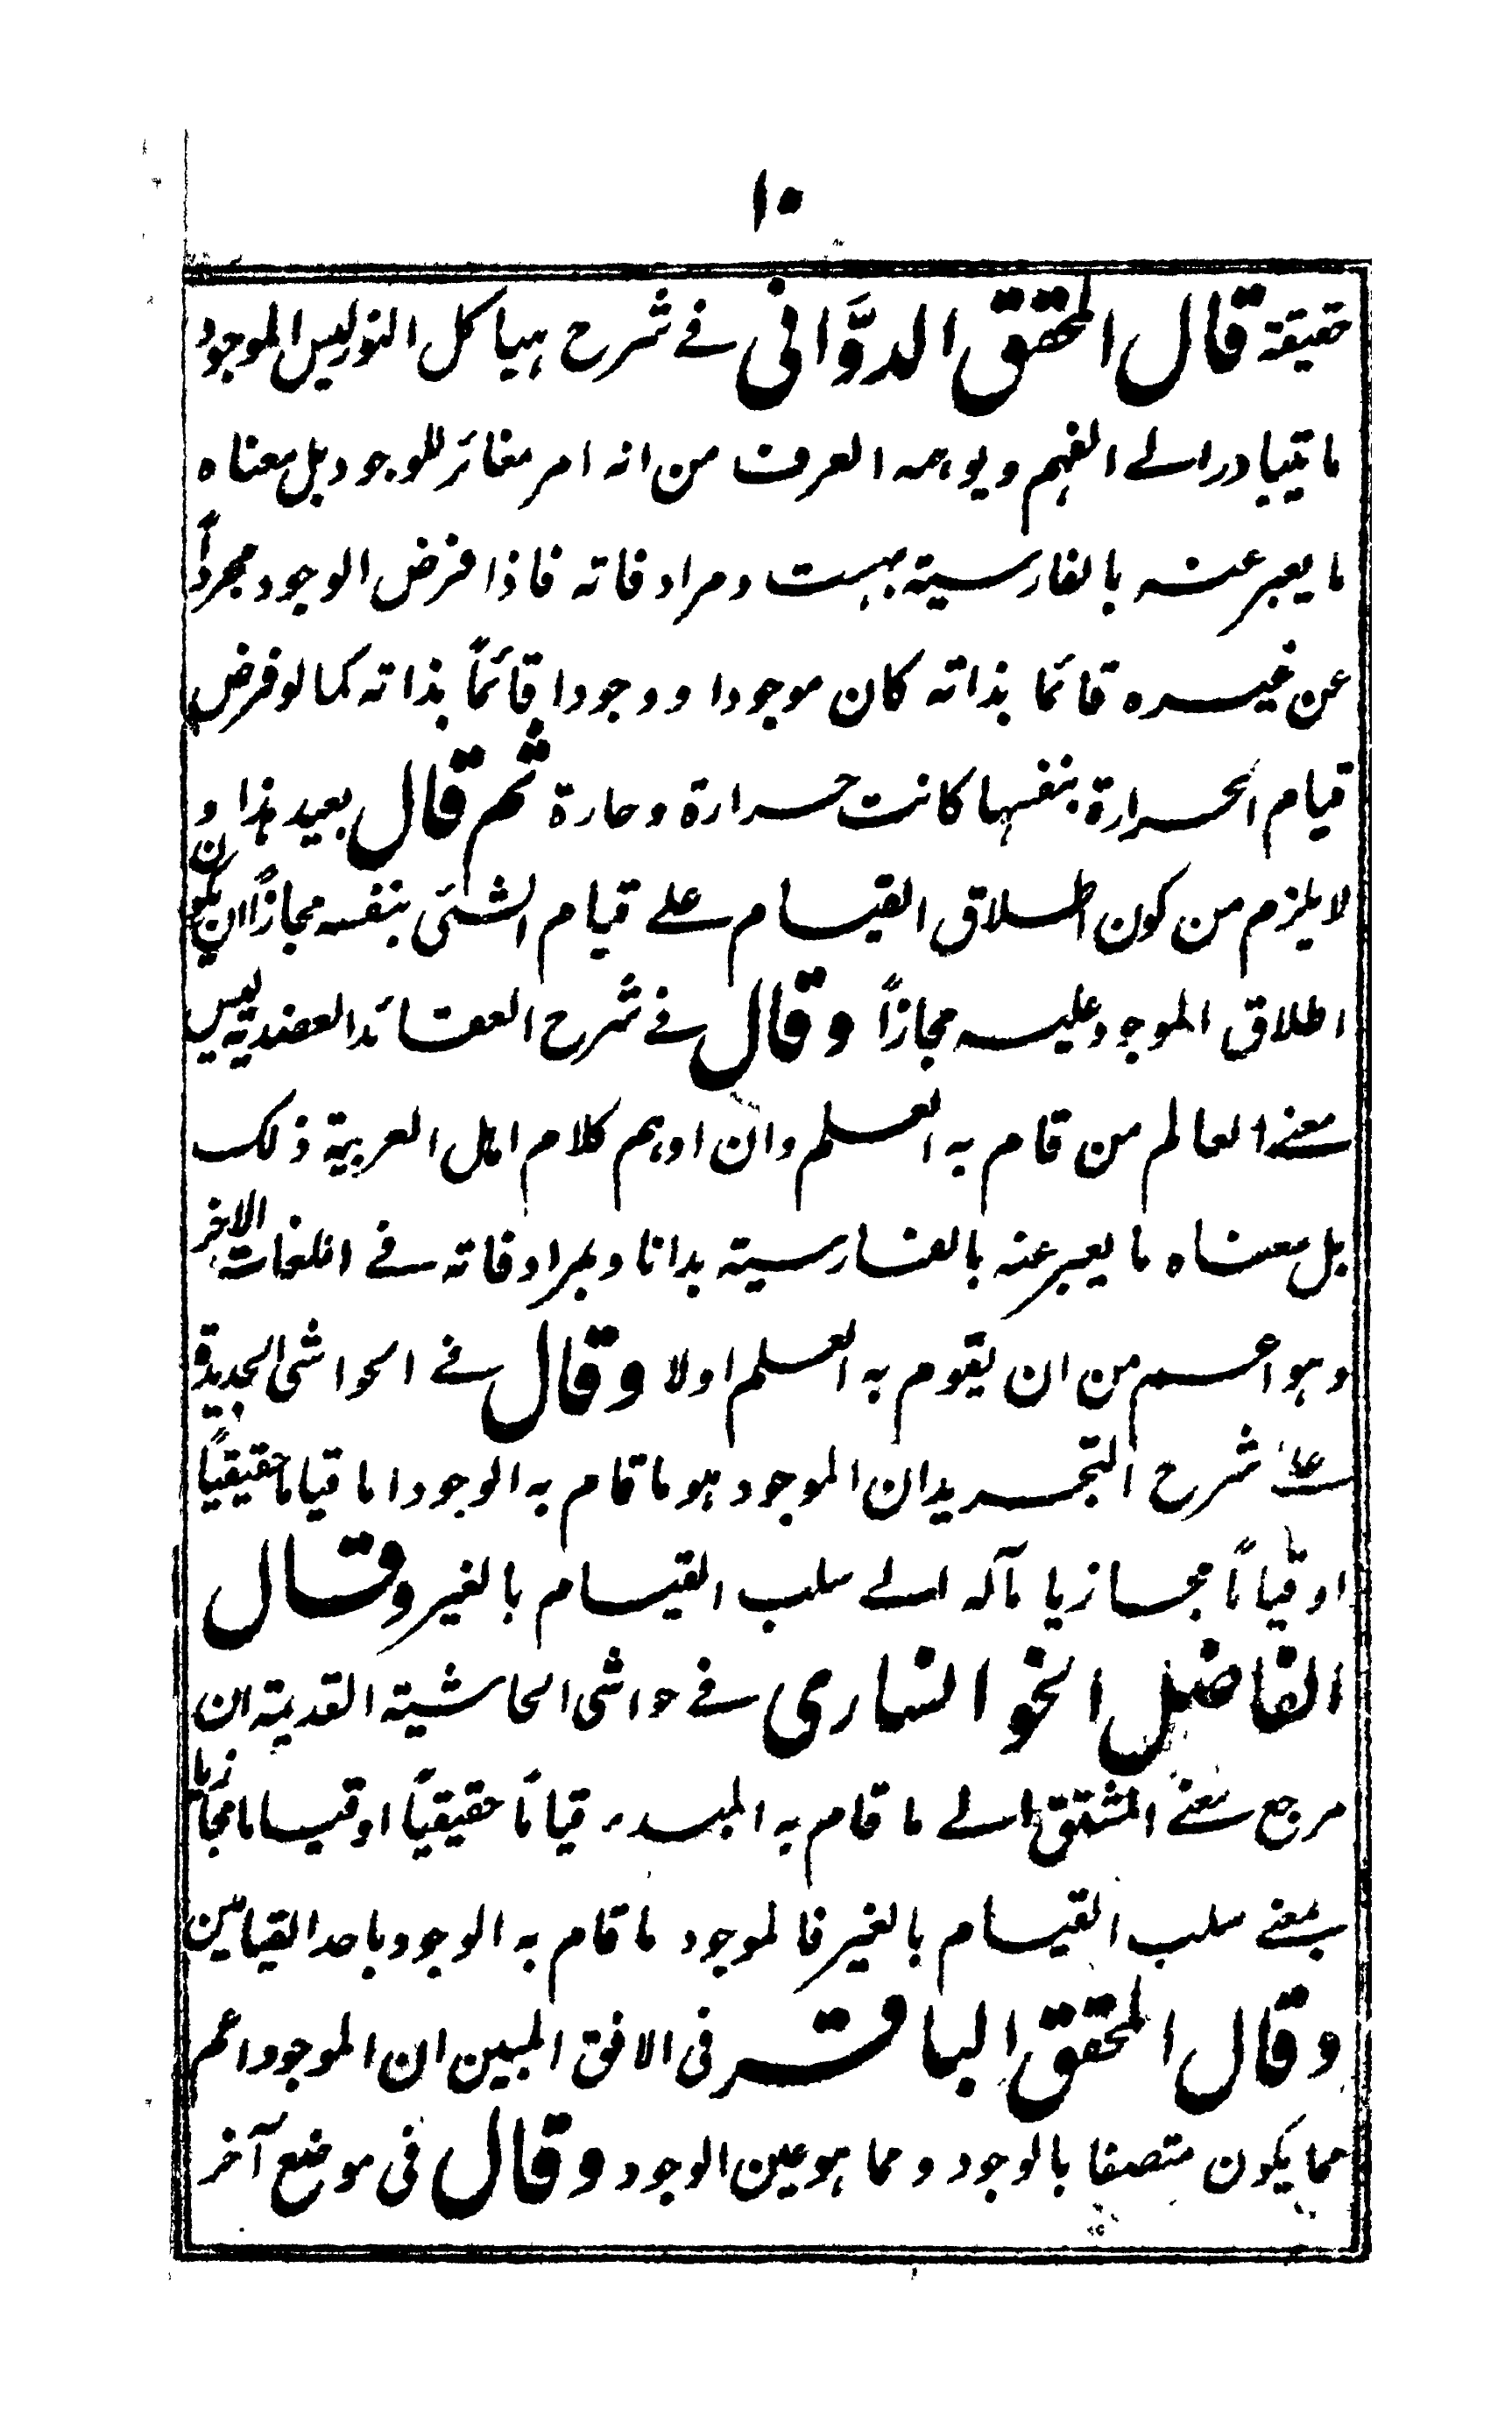 ١٠
حقيقة قال المحقق الدوَّانى فے شرح هياكل النور ليس الموجود
ما يتبادر الے الفهم ويوهمه العرف من انه امر مغائر للوجود بل معناه
ما يعبر عنه بالفارسية بهست ومرادفاته فاذا فرض الوجود مجرداً
عن غيره قائما بذاته كان موجودا ووجودا قائماً بذاته كما لو فرض
قيام الحرارة بنفسها كانت حرارة وحارة ثم قال بعيد هذا و
لا يلزم من كون اطلاق القيام علے قيام الشئ بنفسه مجازاً ان يكون
اطلاق الموجود عليه مجازاً وقال فے شرح العقائد العضدية ليس
معنے العالم من قام به العلم وان اوهم كلام اهل العربية ذلك
بل معناه ما يعبر عنه بالفارسية بدانا وبمرادفاته فے اللغات الاخر
وهو اعم من ان يقوم به العلم اولا وقال فے الحواشى الجديدة
علے شرح التجريد ان الموجود هو ما قام به الوجود اما قياما حقيقياً
او قياماً مجازيا مآله الے سلب القيام بالغير وقال
الفاضل الخوانسارى فے حواشى الحاشية القديمة ان
مرجع معنے المشتق الے ما قام به المبدء قياماً حقيقياً او قياما مجازيا
بمعنے سلب القيام بالغير فالموجود ما قام به الوجود باحد القيامين
وقال المحقق الباقر فى الافق المبين ان الموجود اعم
مما يكون متصفا بالوجود ومما هو عين الوجود وقال فى موضع آخر